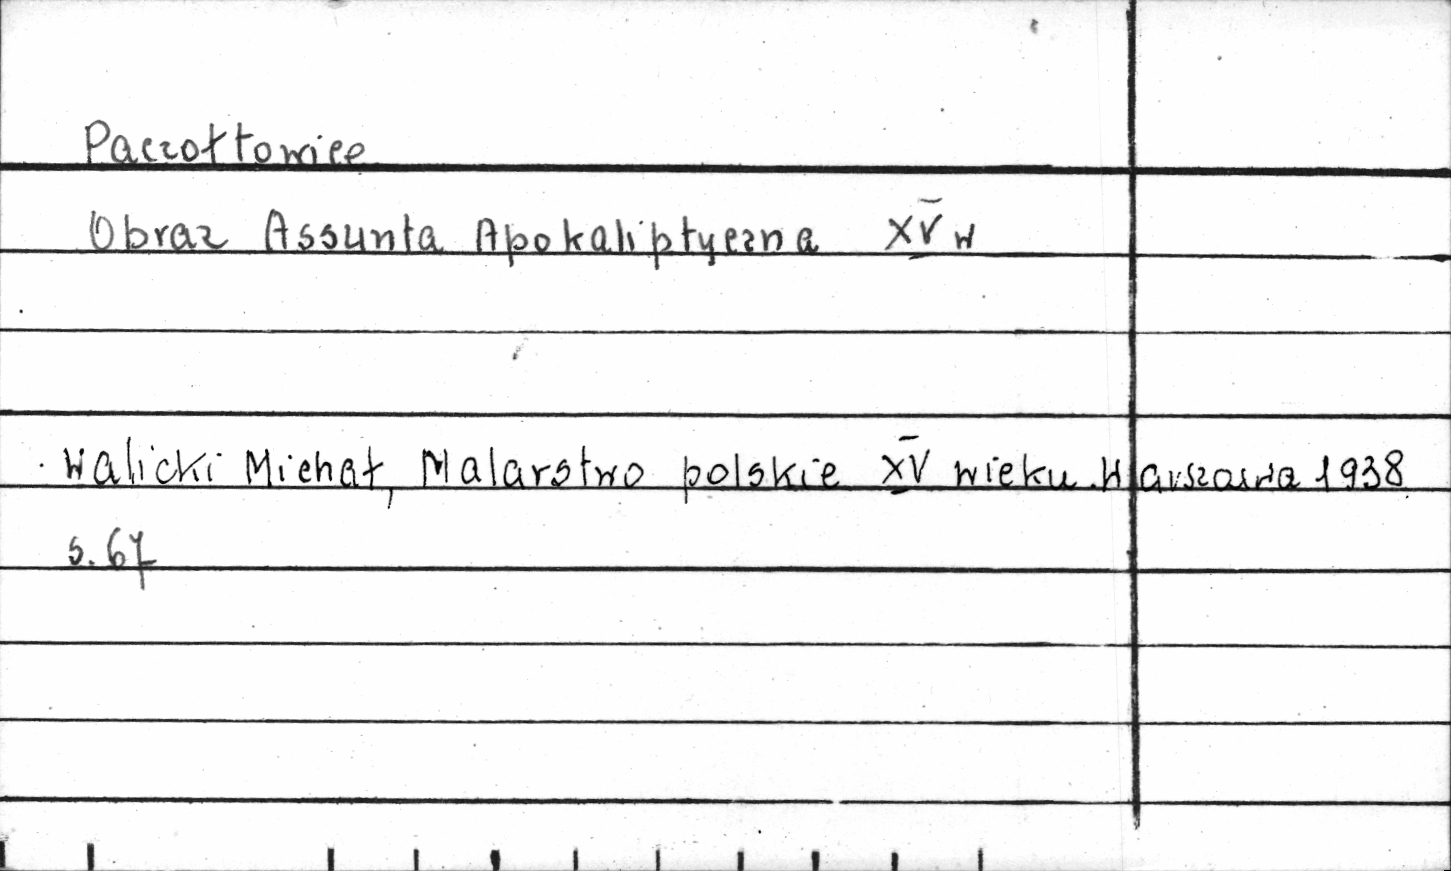 Paczołtowice
Obraz Assunta Apokaliptyczna XV w
Walicki Michał, Malarstwo polskie XV wieku. Warszawa 1938
s. 67